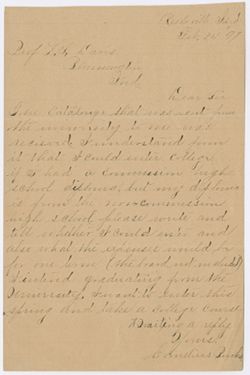 Feb. 24 '97
Prof
Bloomington
Ind.
Dear Sir
Your Catalogue that was sent from
the university to me was
received. I understand from
it that I could enter college
if I had a commission high
school diploma, but my diploma
is from the non-commission
high school please write and
tell whether I could enter and
also what the expenses would be
for one term (the board not included)
I intend graduating from the
University, I want to enter this
spring and take a College Course
Waiting a reply
Yours,
Cornelius